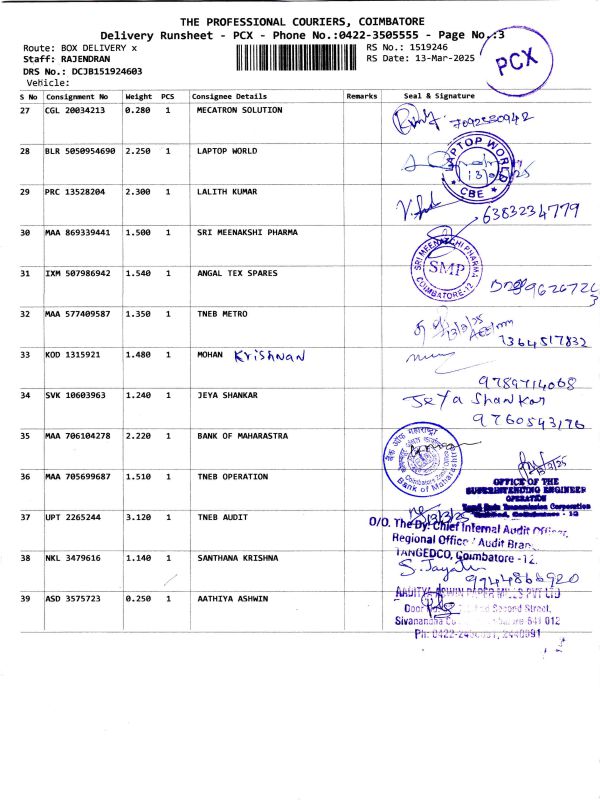 THE PROFESSIONAL COURIERS, COIMBATORE
Delivery Runsheet - PCX - Phone No.:0422-3505555 - Page No.:3
Route: BOX DELIVERY x
RS No.: 1519246
Staff: RAJENDRAN
RS Date: 13-Mar-2025
DRS No.: DCJB151924603
Vehicle:
PCX
S No Consignment No Weight PCS Consignee Details Remarks Seal & Signature
27 CGL 20034213 0.280 1 MECATRON SOLUTION
28 BLR 5050954690 2.250 1 LAPTOP WORLD
LAPTOP WORLD
CBE
29 PRC 13528204 2.300 1 LALITH KUMAR
6383234779
30 MAA 869339441 1.500 1 SRI MEENAKSHI PHARMA
SRI MEENATCHI PHARMA
SMP
COIMBATORE-12
31 IXM 507986942 1.540 1 ANGAL TEX SPARES
32 MAA 577409587 1.350 1 TNEB METRO
13/3/25
33 KOD 1315921 1.480 1 MOHAN Krishnan
9789714068
34 SVK 10603963 1.240 1 JEYA SHANKAR
Jeya Shankar
9760543176
35 MAA 706104278 2.220 1 BANK OF MAHARASTRA
बैंक ऑफ महाराष्ट्र
Bank of Maharashtra
36 MAA 705699687 1.510 1 TNEB OPERATION
13/3/25
OFFICE OF THE
SUPERINTENDING ENGINEER
OPERATION
37 UPT 2265244 3.120 1 TNEB AUDIT
13/3/25
O/O. The Dy. Chief Internal Audit Officer,
Regional Office / Audit Branch
TANGEDCO, Coimbatore -12.
38 NKL 3479616 1.140 1 SANTHANA KRISHNA
39 ASD 3575723 0.250 1 AATHIYA ASHWIN
PAPER MILLS PVT LTD
Second Street,
641 012